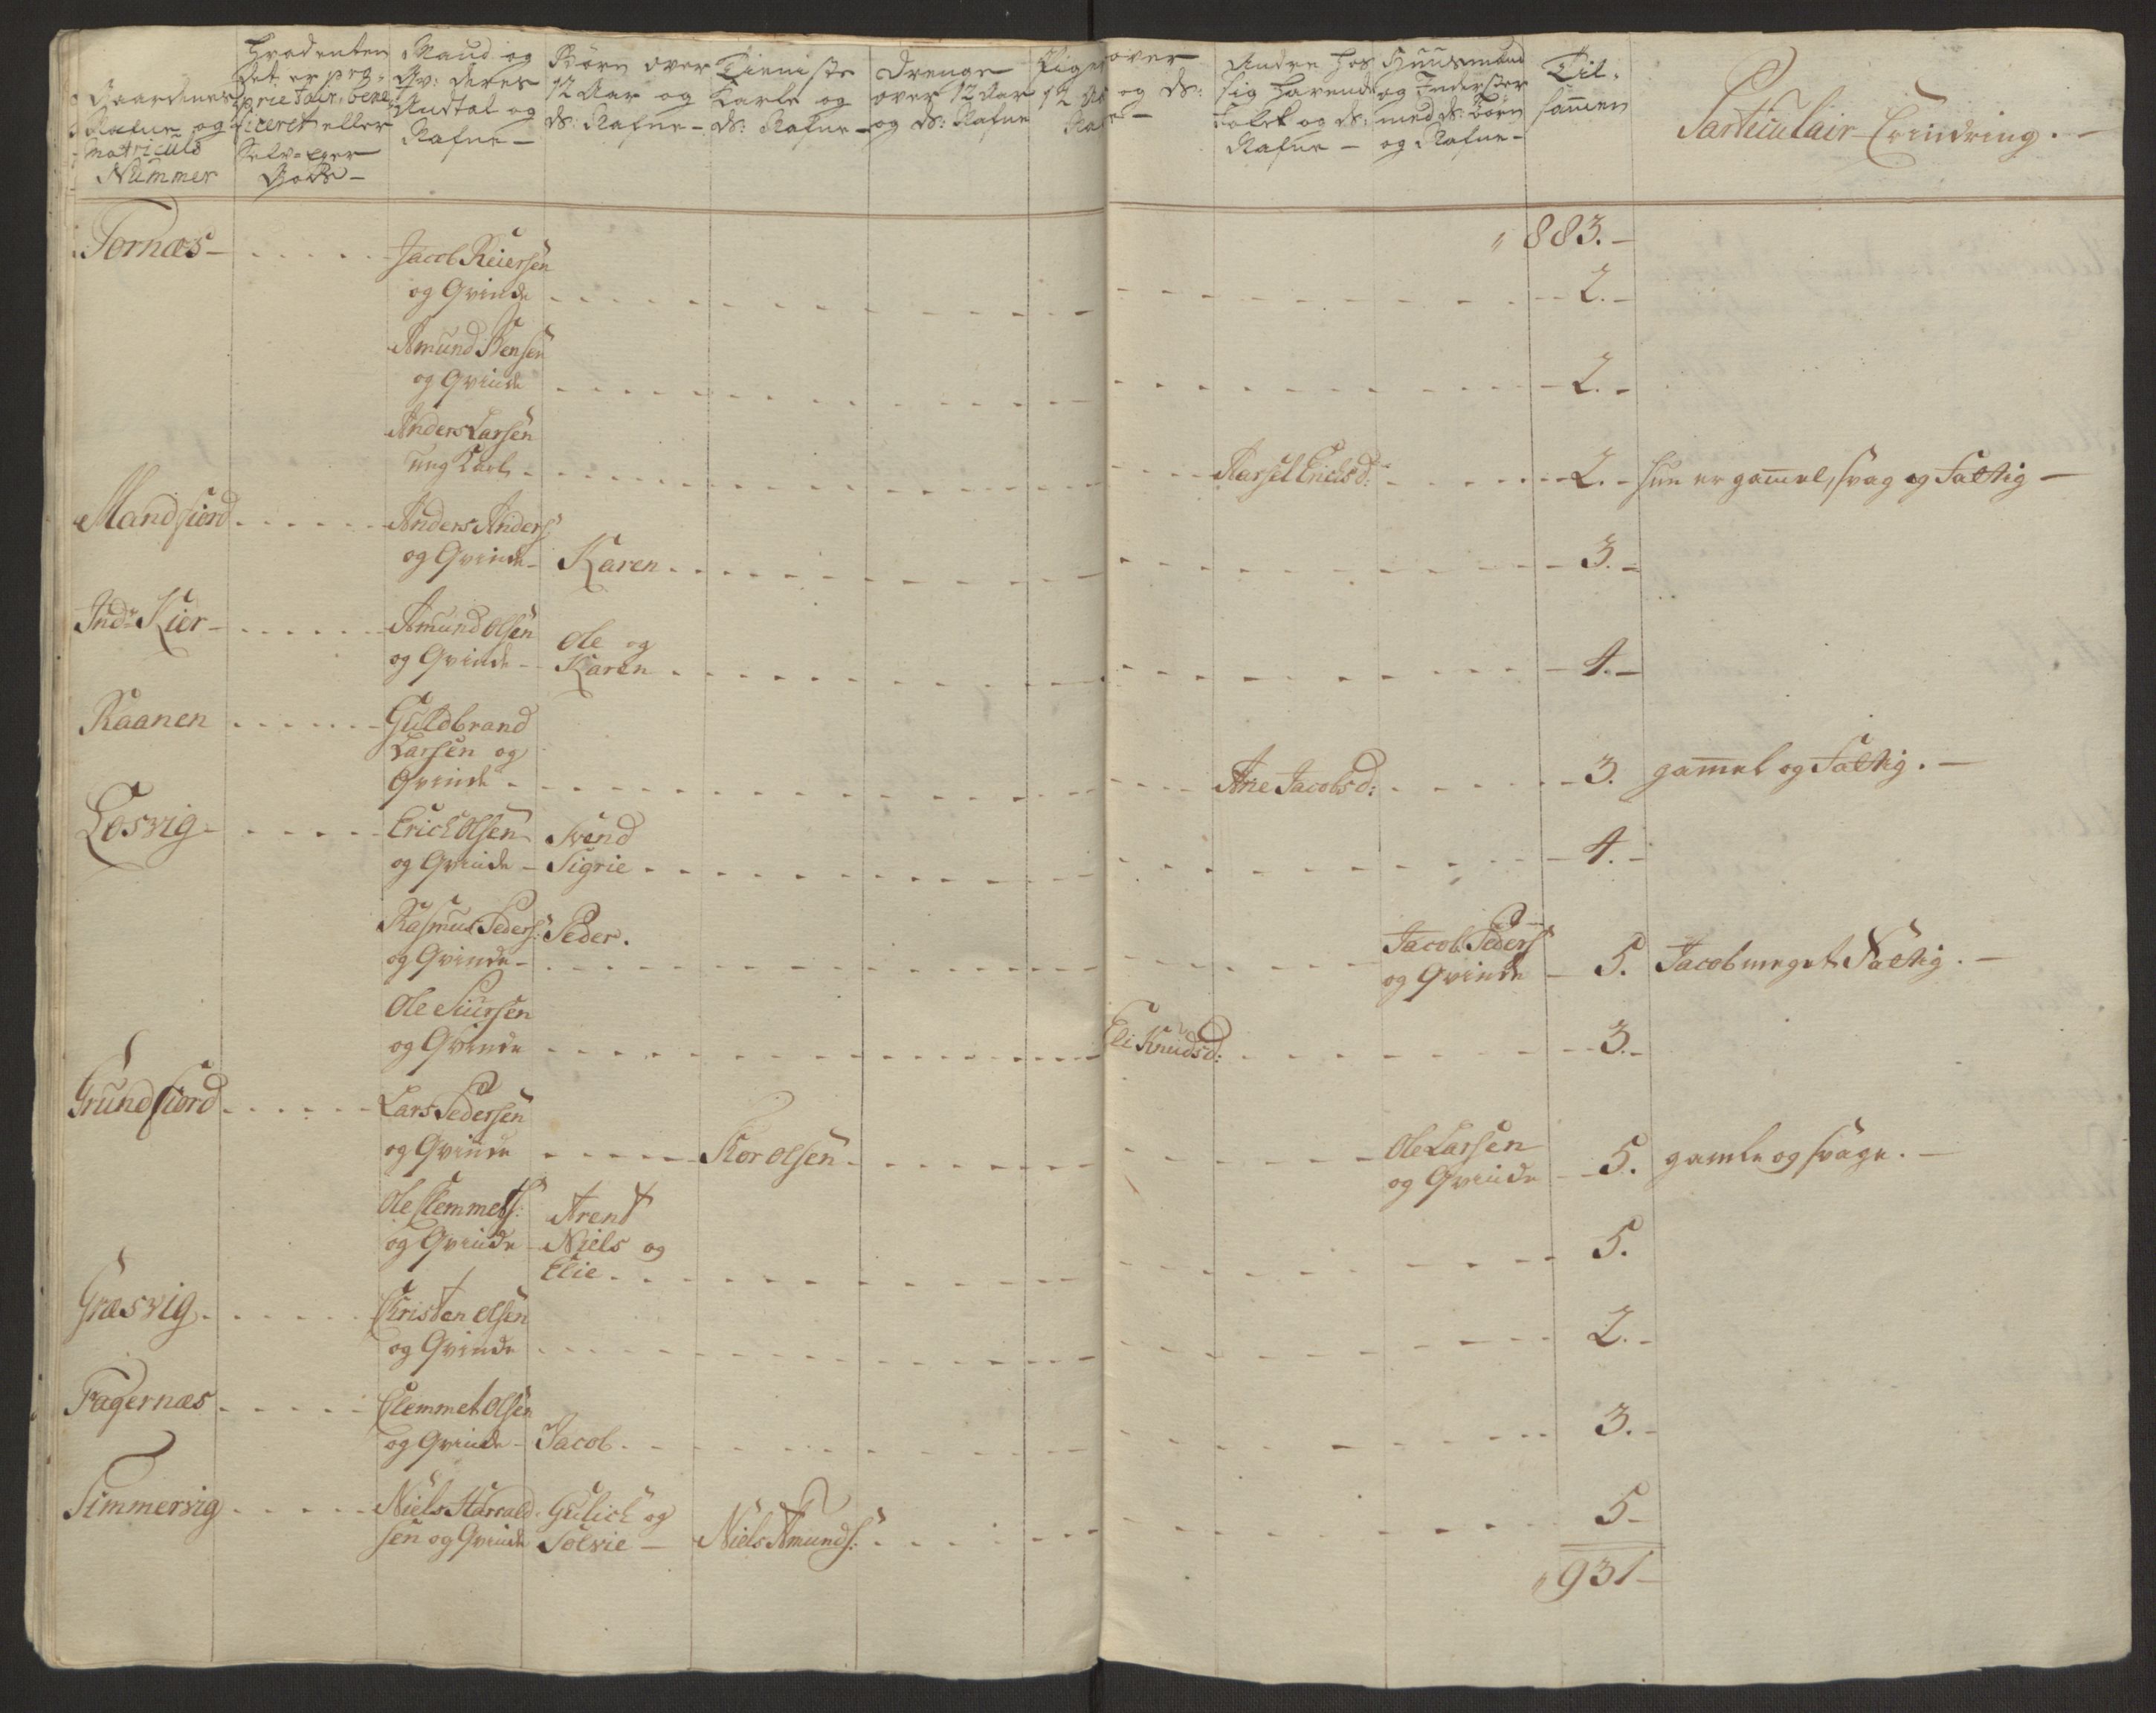 Gaardenes Nafne og Matriculs Nummer
Hvadenten det er proprietair, beneficeret eller Selv-Eyer Gods –
Mænd og Qv: deres Andtal og Nafne –
Børn over 12 Aar og ds: Nafne –
Tieniste Karle og ds: Nafne –
Drenge over 12 Aar og ds: Nafne
Piger over 12 Aar og ds: Nafne –
Andre hos sig havende Folck og ds: Nafne –
Huusmænd og Inderster med ds: Børn og Nafne –
Til- sam̄en
Particulair Erindring. –
883. –
Tornæs – Jacob Reiersen
og Qvinde 2. –
Amund Stensen
og Qvinde 2. –
Anders Larsen
ung Karl – Aarsel Erichsd: 2. – hun er gam̄el, svag og Fattig –
Mandfiord Anders Anders:
og Qvinde – Karen 3. –
Indr Kier – Amund Olsen Ole og
og Qvinde – Karen 4. –
Raanen Guldbrand
Larsen og
Qvinde – Ane Jacobsd: 3. gam̄el og Fattig. –
Løsvig – Erich Olsen Svend
og Qvinde – Sigrie 4. –
Rasmus Peders: Peder. Jacob Peders:
og Qvinde – og Qvinde 5. Jacob meget Fattig. –
Ole Siursen
og Qvinde Eli Knudsd: 3. –
Grundfiord Lars Pedersen
og Qvinde Kor Olsen Ole Larsen
og Qvinde 5. gamle og svage. –
Ole Clemmets: Arent
og Qvinde Niels og
Elie 5.
Græsvig Christen Olsen
og Qvinde 2. –
Fagernæs Clemmet Olsen
og Qvinde – Jacob 3. –
Simmervig Niels Harrald- Gulich og
sen og Qvinde Solvie – Niels Amunds: 5 –
931 –